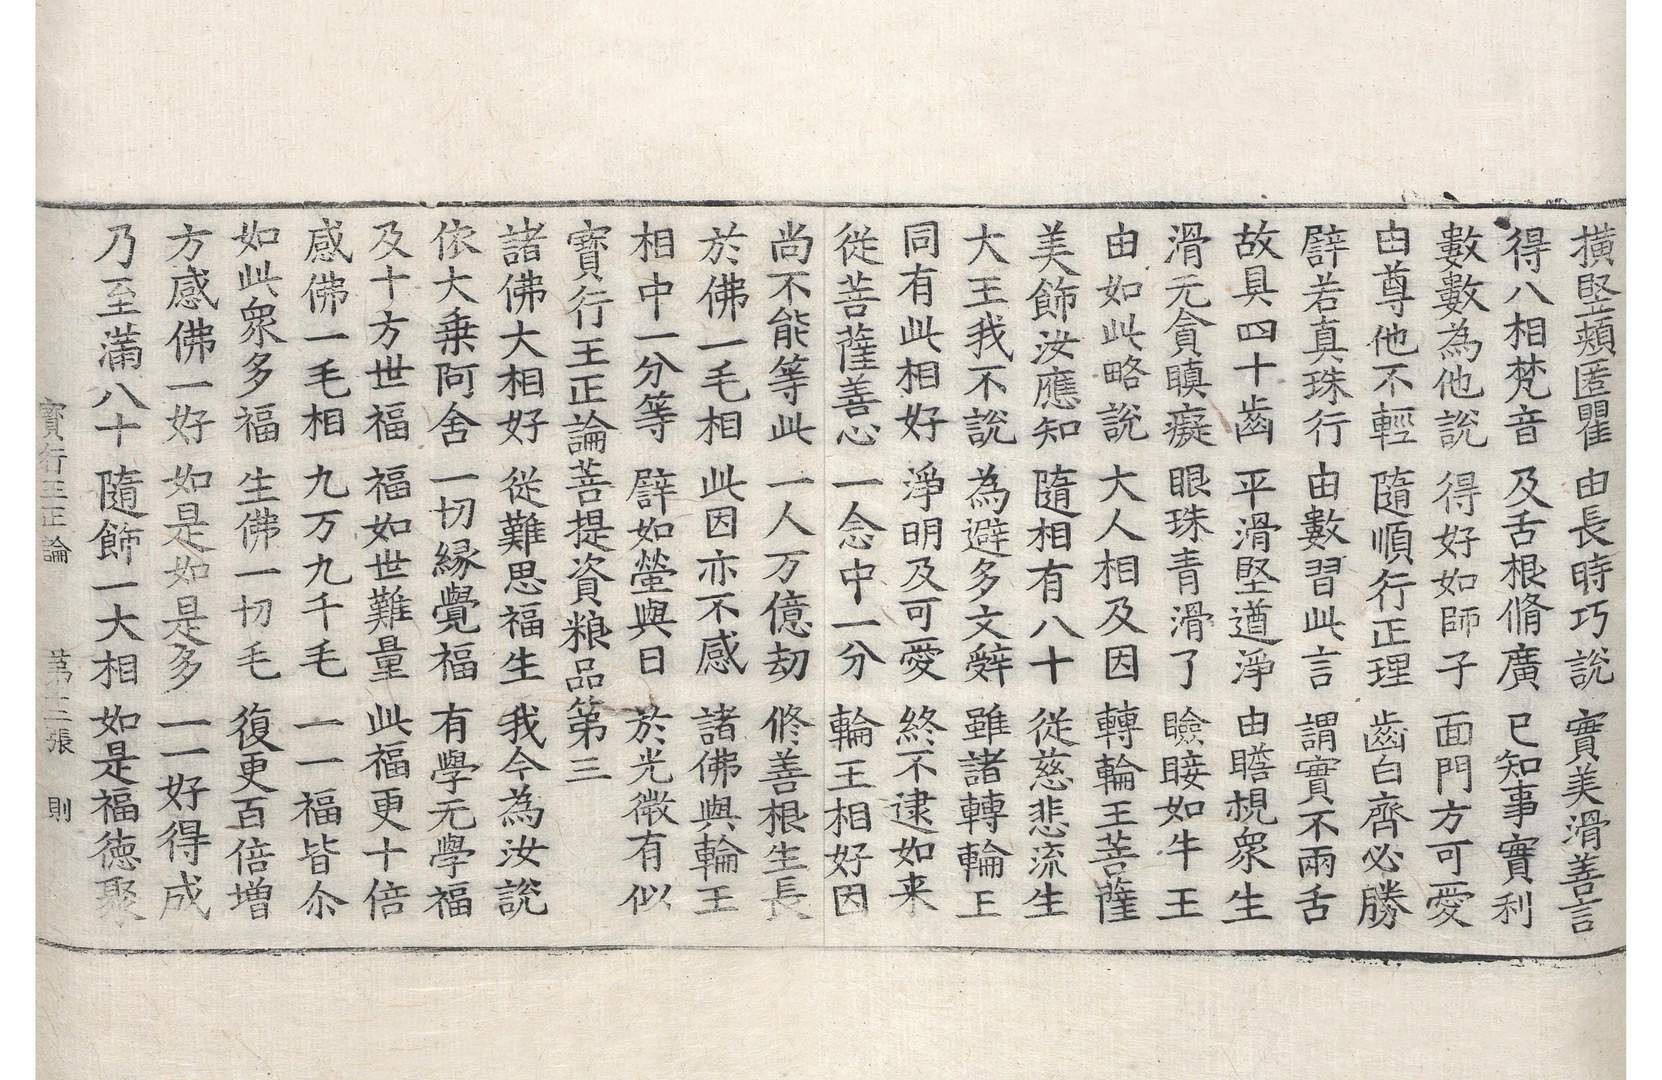 橫堅頰匿瞿 由長時巧說 實美滑善言
得八相梵音 及舌根脩廣 已知事實利
數數為他說 得好如師子 面門方可愛
由尊他不輕 隨順行正理 齒白齊必勝
譬若真珠行 由數習此言 謂實不兩舌
故具四十齒 平滑堅遒淨 由瞻視衆生
滑元貪瞋癡 眼珠青滑了 瞼睫如牛王
由如此略說 大人相及因 轉輪王菩薩
美飾汝應知 隨相有八十 從慈悲流生
大王我不說 為避多文辭 雖諸轉輪王
同有此相好 淨明及可愛 終不逮如来
從菩薩善心 一念中一分 輪王相好因
尚不能等此 一人万億劫 修善根生長
於佛一毛相 此因亦不感 諸佛與輪王
相中一分等 譬如螢與日 於光微有似
寶行王正論菩提資粮品第三
諸佛大相好 從難思福生 我今為汝說
依大乗阿舍 一切緣覺福 有學无學福
及十方世福 福如世難量 此福更十倍
感佛一毛相 九万九千毛 一一福皆尒
如此衆多福 生佛一切毛 復更百倍增
方感佛一好 如是如是多 一一好得成
乃至滿八十 隨飾一大相 如是福德聚
寶行王正論 第十二張 則